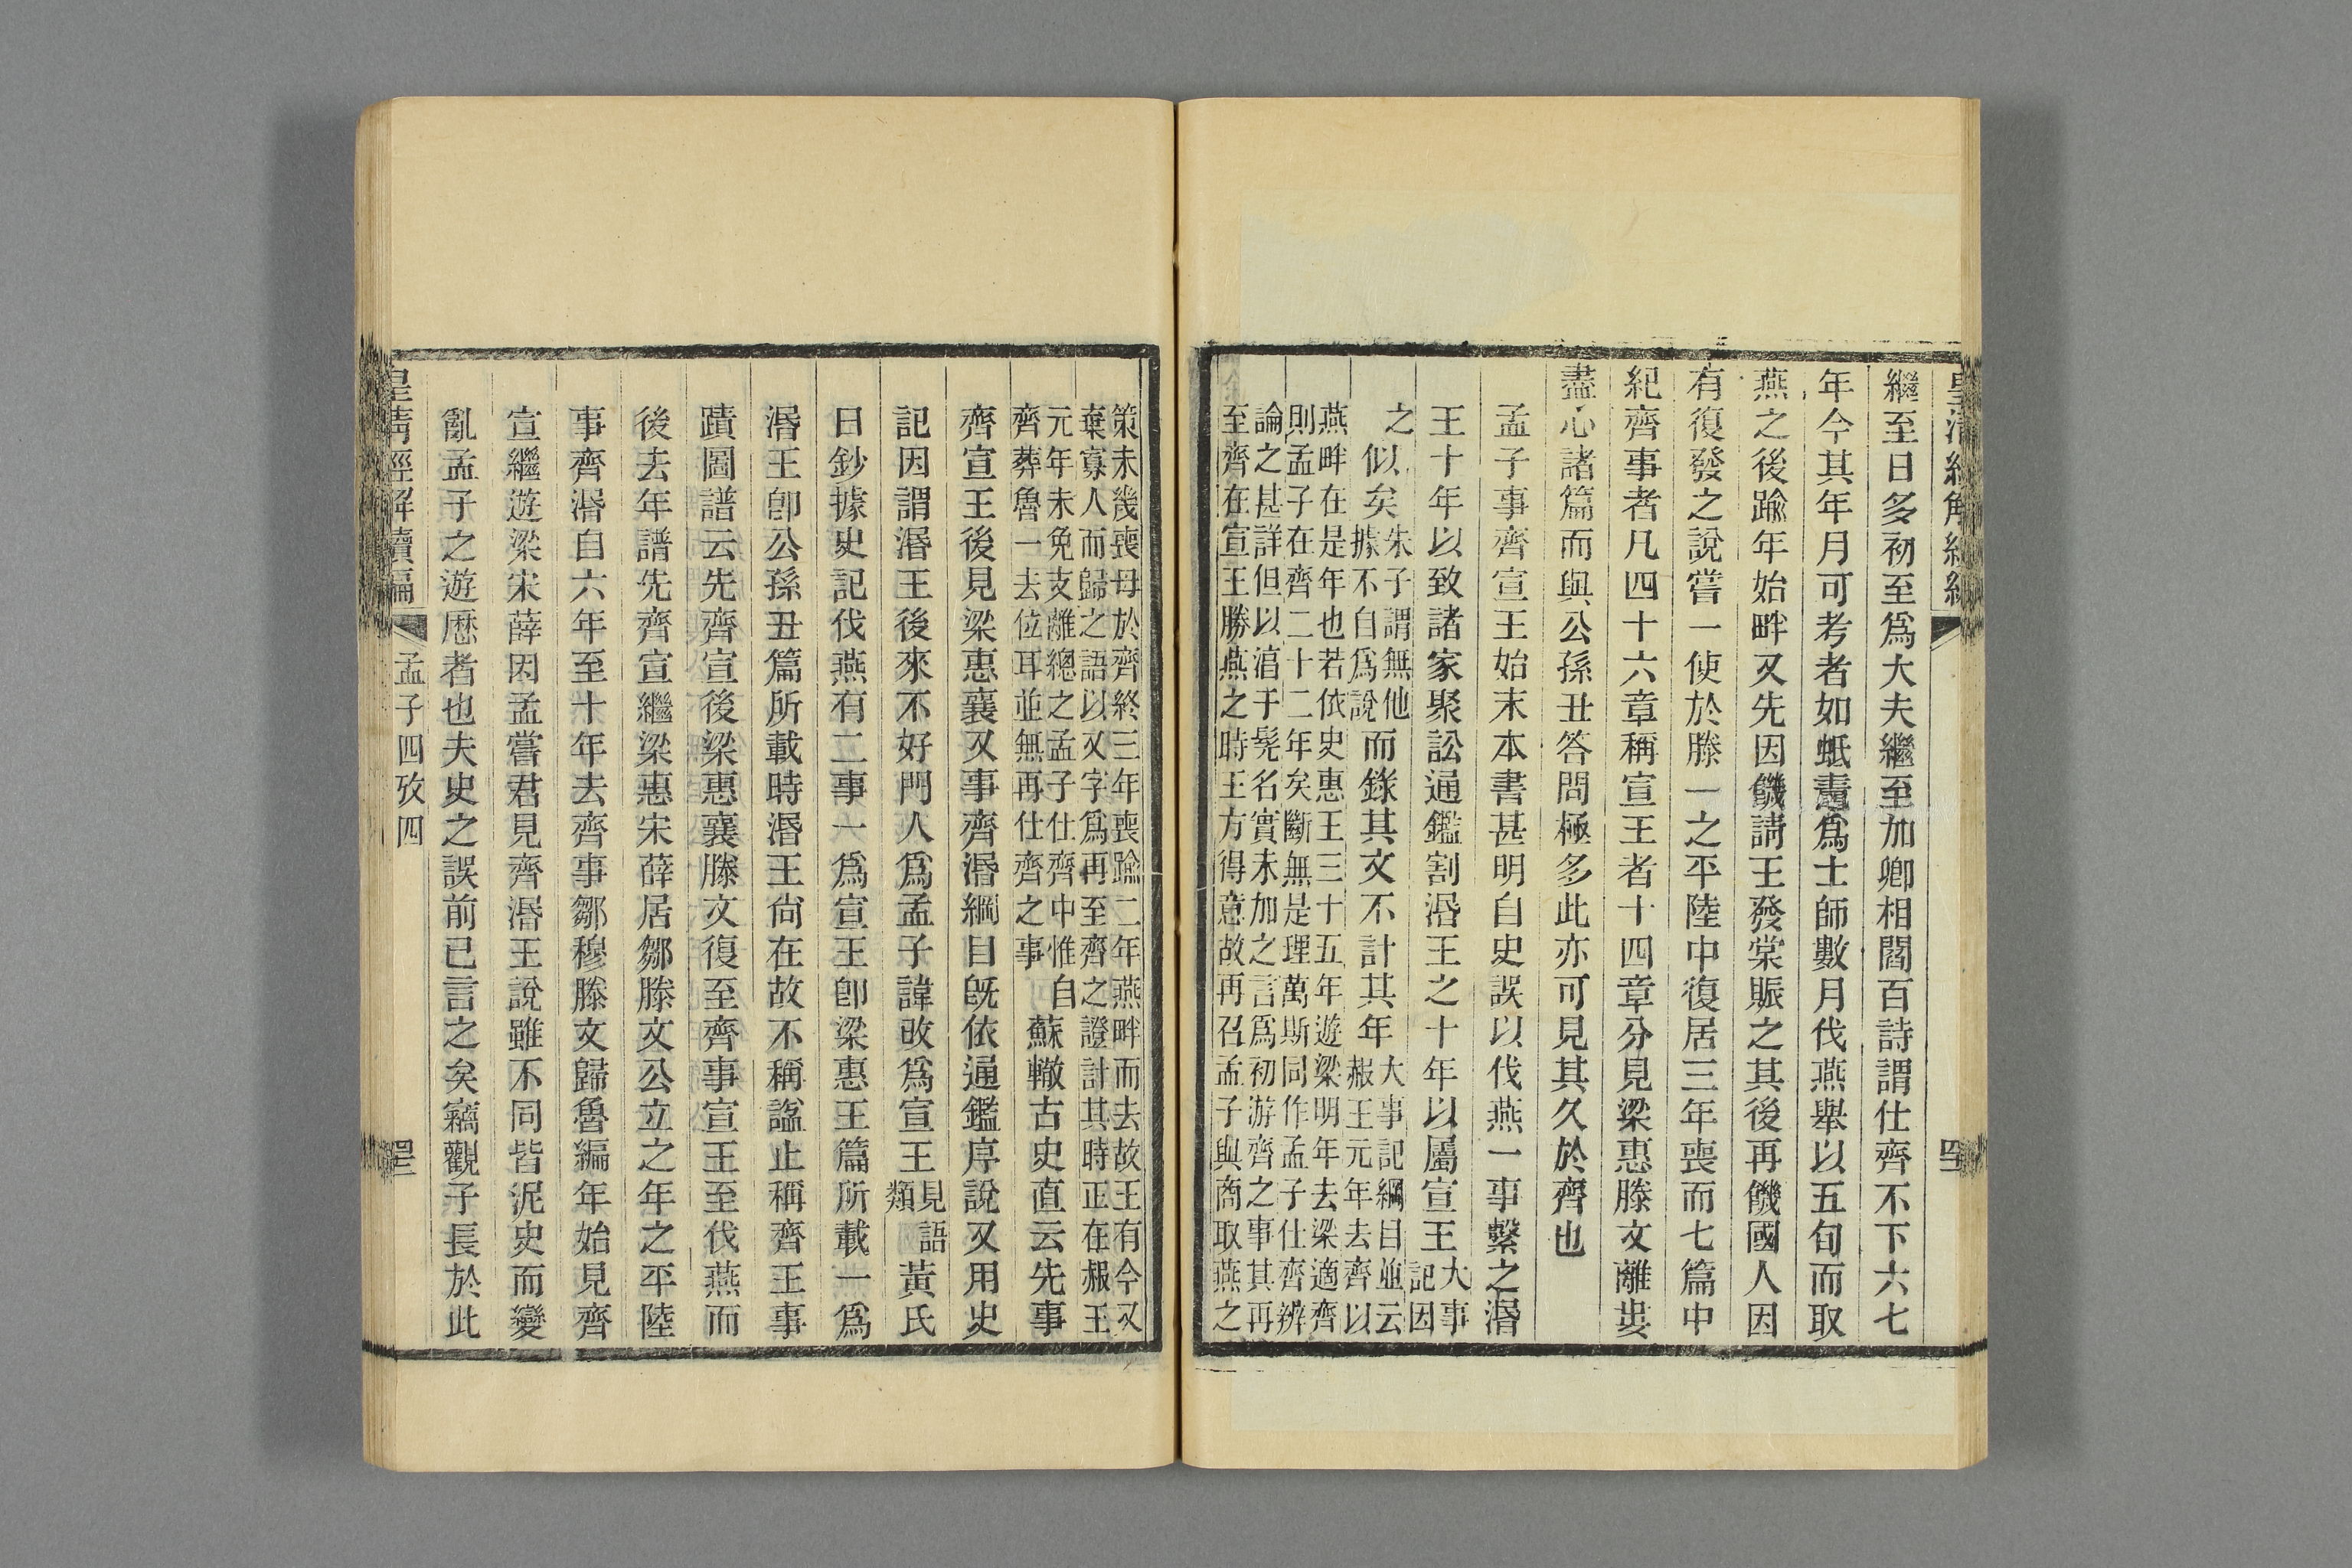 繼至日多初至爲大夫繼至加卿相閻百詩謂仕齊不下六七
年今其年月可考者如蚳鼃爲士師數月伐燕舉以五旬而取
燕之後踰年始畔又先因饑請王發棠賑之其後再饑國人因
有復發之說嘗一使於滕一之平陸中復居三年喪而七篇中
紀齊事者凡四十六章稱宣王者十四章分見梁惠滕文離婁
盡心諸篇而與公孫丑答問極多此亦可見其久於齊也
孟子事齊宣王始末本書甚明自史誤以伐燕一事繫之湣
王十年以致諸家聚訟通鑑割湣王之十年以屬宣王大事記因
之似矣朱子謂無他據不自爲說而錄其文不計其年大事記綱目並云赧王元年去齊以
燕畔在是年也若依史惠王三十五年遊梁明年去梁適齊
則孟子在齊二十二年矣斷無是理萬斯同作孟子仕齊辨
論之甚詳但以淳于髡名實未加之言爲初游齊之事其再
至齊在宣王勝燕之時王方得意故再召孟子與商取燕之
策未幾喪母於齊終三年喪踰二年燕畔而去故王有今又
棄寡人而歸之語以又字爲再至齊之證計其時正在赧王
元年未免支離總之孟子仕齊中惟自
齊葬魯一去位耳並無再仕齊之事蘇轍古史直云先事
齊宣王後見梁惠襄又事齊湣綱目旣依通鑑序說又用史
記因謂湣王後來不好門人爲孟子諱改爲宣王見語類黃氏
日鈔據史記伐燕有二事一爲宣王卽梁惠王篇所載一爲
湣王卽公孫丑篇所載時湣王尙在故不稱謚止稱齊王事
蹟圖譜云先齊宣後梁惠襄滕文復至齊事宣王至伐燕而
後去年譜先齊宣繼梁惠宋薛居鄒滕文公立之年之平陸
事齊湣自六年至十年去齊事鄒穆滕文歸魯編年始見齊
宣繼遊梁宋薛因孟嘗君見齊湣王說雖不同皆泥史而變
亂孟子之遊歷者也夫史之誤前已言之矣竊觀子長於此
皇淸經解續編
孟子四攷四